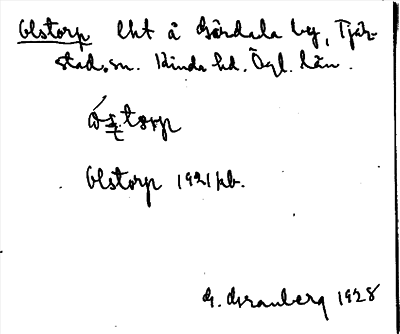 Olstorp lht å Gärdala by, Tjär-
stads sn. Kinda hd. Ögl. län.
Olstorp 1921 jb.
G. Granberg 1928